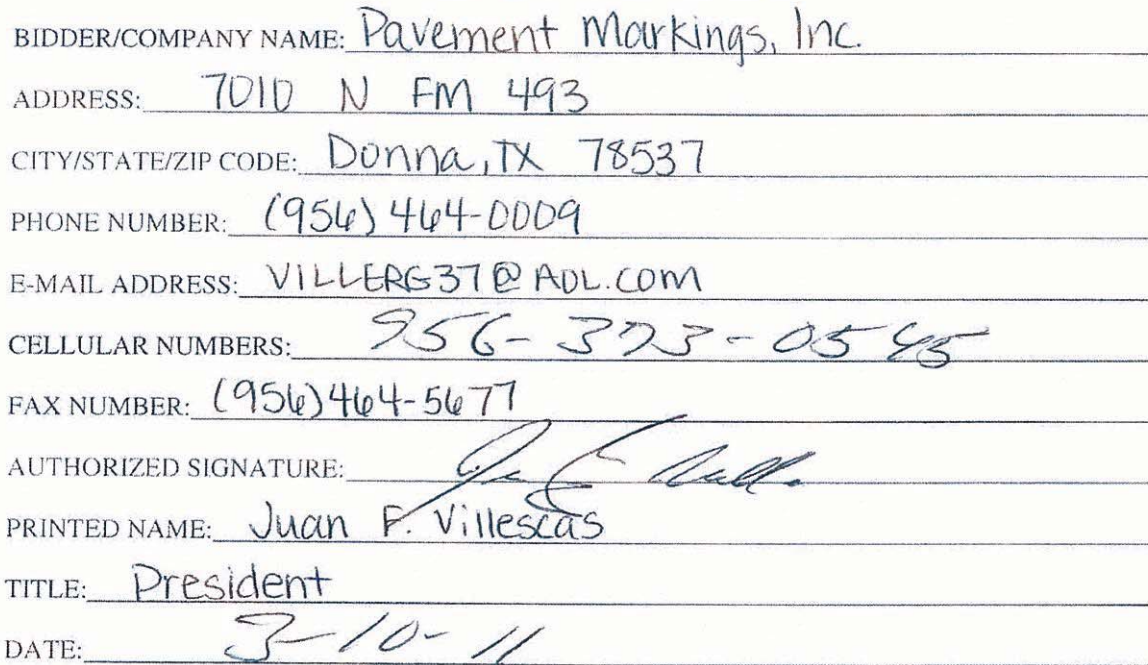 BIDDER/COMPANY NAME: Pavement Markings, Inc.
ADDRESS: 7010 N FM 493
CITY/STATE/ZIP CODE: Donna, TX 78537
PHONE NUMBER: (956) 464-0009
E-MAIL ADDRESS: VILLERG37@AOL.COM
CELLULAR NUMBERS: 956-373-0545
FAX NUMBER: (956) 464-5677
AUTHORIZED SIGNATURE:
PRINTED NAME: Juan F. Villescas
TITLE: President
DATE: 3-10-11